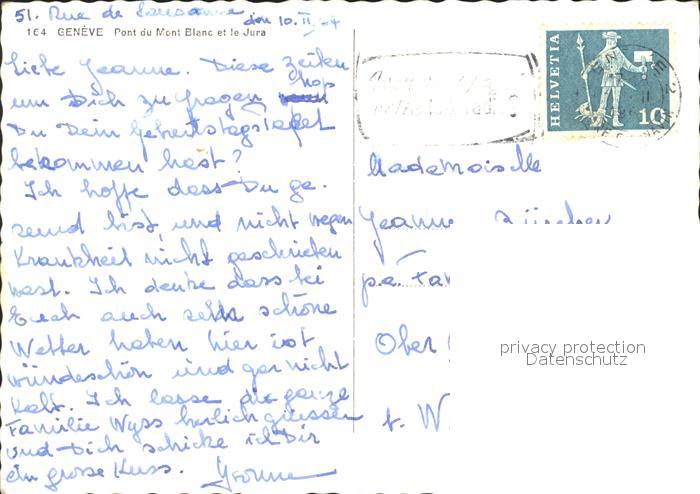 51. Rue de Lausanne den 10. II. 64
164 GENÈVE Pont du Mont Blanc et le Jura
Liebe Jeanne. Diese Zeilen
um Dich zu fragen
Du Dein Geburtstagspaket
bekommen hast?
Ich hoffe dass Du ge-
sund bist, und nicht wegen
Krankheit nicht geschrieben
hast. Ich denke dass bei
Euch auch schöne
Wetter haben hier ist
wündeschön und gar nicht
Kalt. Ich lasse die ganze
Familie Wyss herlich grüssen
und Dich schicke ich Dir
ein grosse Kuss. Yvonne
HELVETIA
10
Mademoiselle
Jeanne
p.a. Fa
Ober
b. W
privacy protection
Datenschutz